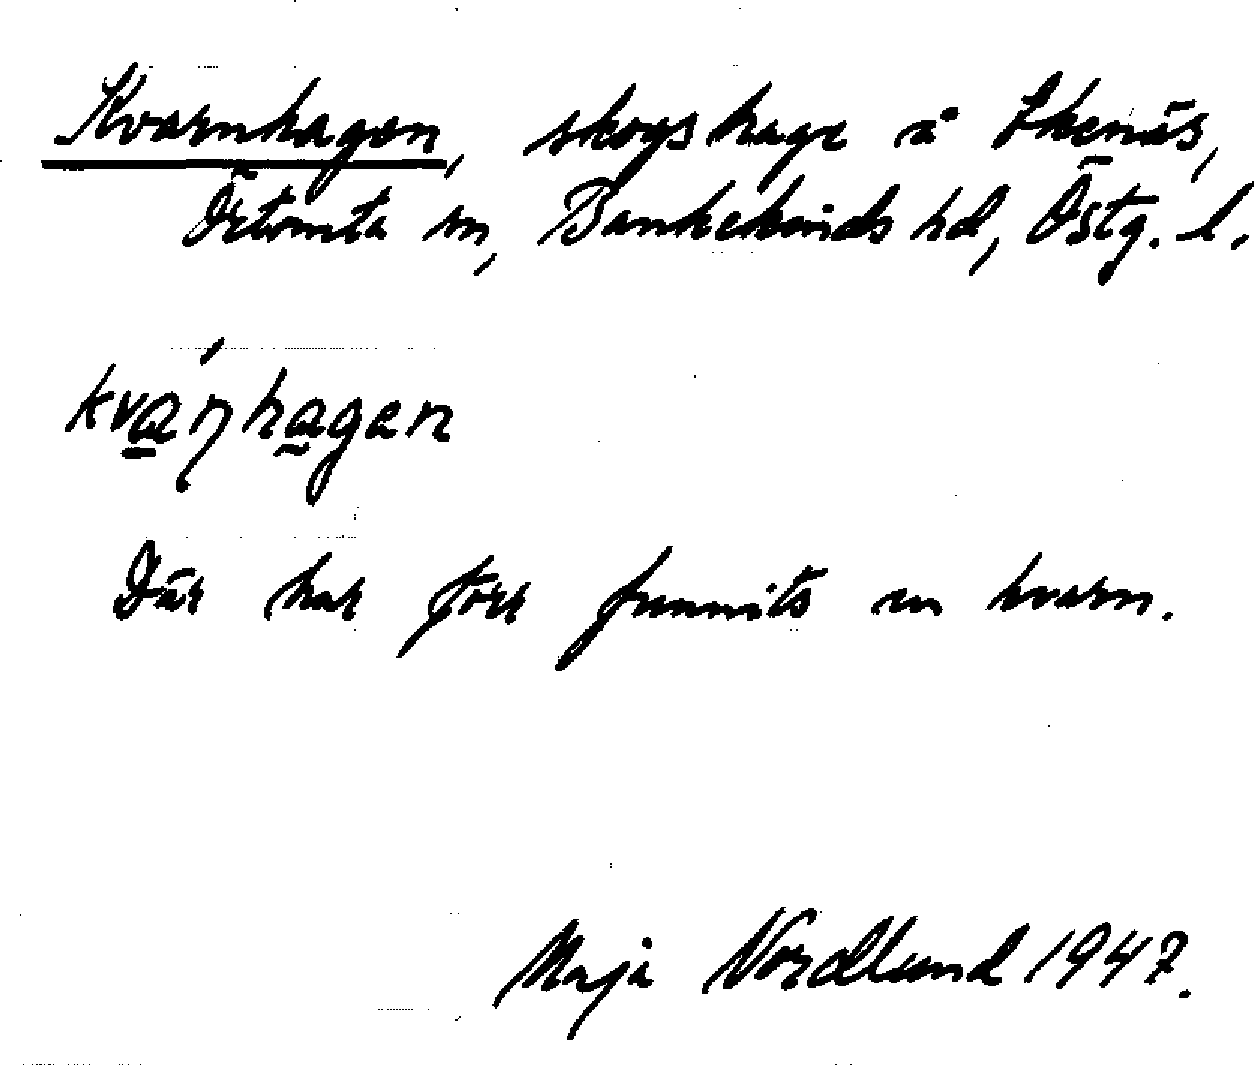 Kvarnhagen, skogshage å Ekenäs,
Örtomta sn, Bankekinds hd, Östg. l.
kvaɳ́hagen
Där har förr funnits en kvarn.
Maja Nordlund 1947.